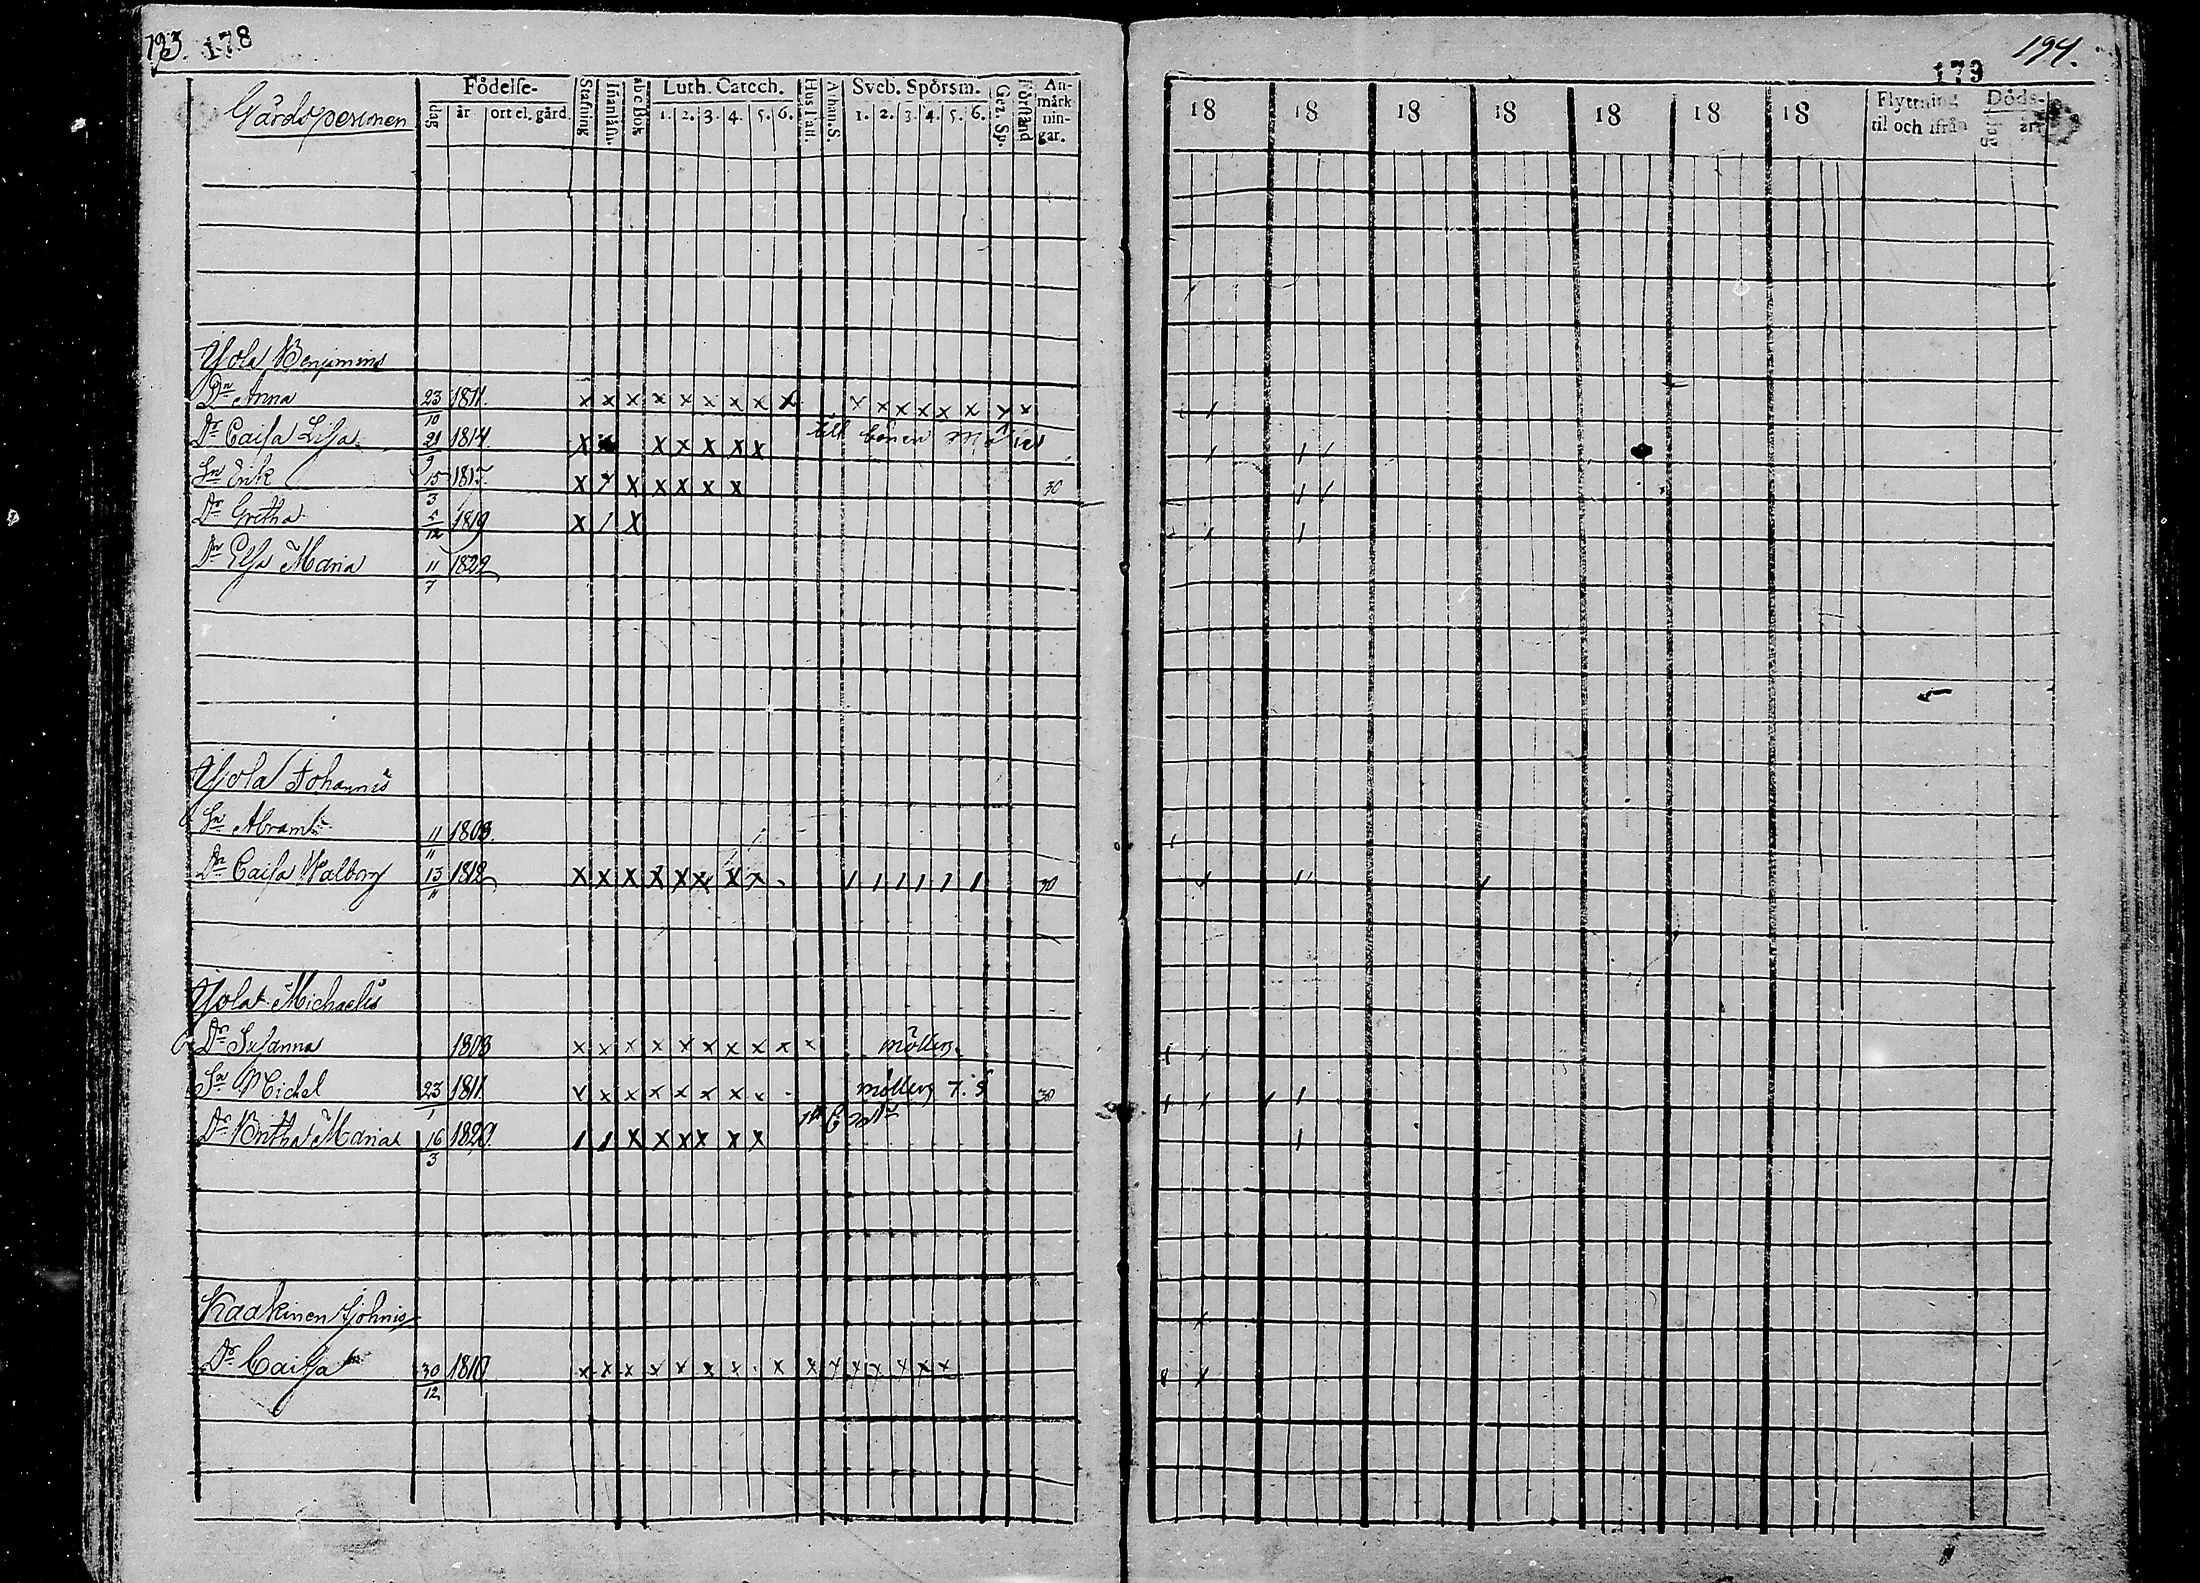 193. 178
Födelse-
Stafning
Innanläsn.
abc Bok
Luth. Catech.
Hus Tafl.
Athan. S.
Sveb. Spörsm.
Gez. Sp.
Förstånd
An-
märk
nin-
gar.
Gårdspersonen
dag
år
ort el. gård.
1. 2. 3. 4. 5. 6.
1. 2. 3. 4. 5. 6.
Yola Benjamins
Dr Anna 23/10 1811. x x x x x x x x x x x x x x x x x
Dr Caisa Lisa 21/9 1814. x x x x x x
Sn Erik 15/3 1817. x x x x x x x 30
Dr Gretha 1819 x / x
Dr Elsa Maria 11/7 1822
Yola Johannis
Sn Abram 11/11 1808.
Dr Caisa Walborg 13/11 1812 x x x x x x x x / / / / / / 30
Yola Michaelis
Dr Susanna 1808 x x x x x x x x x x
Sn Michel 23/1 1811 x x x x x x x x 30
Dr Britha Maria 16/3 1820. / / x x x x x x
Kaakinen Johnis
Dr Caisa 30/12 1810 x x x x x x x x x x x x x x x
194.
179
18 18 18 18 18 18 18
Flyttning
til och ifrån
Döds-
dag
år